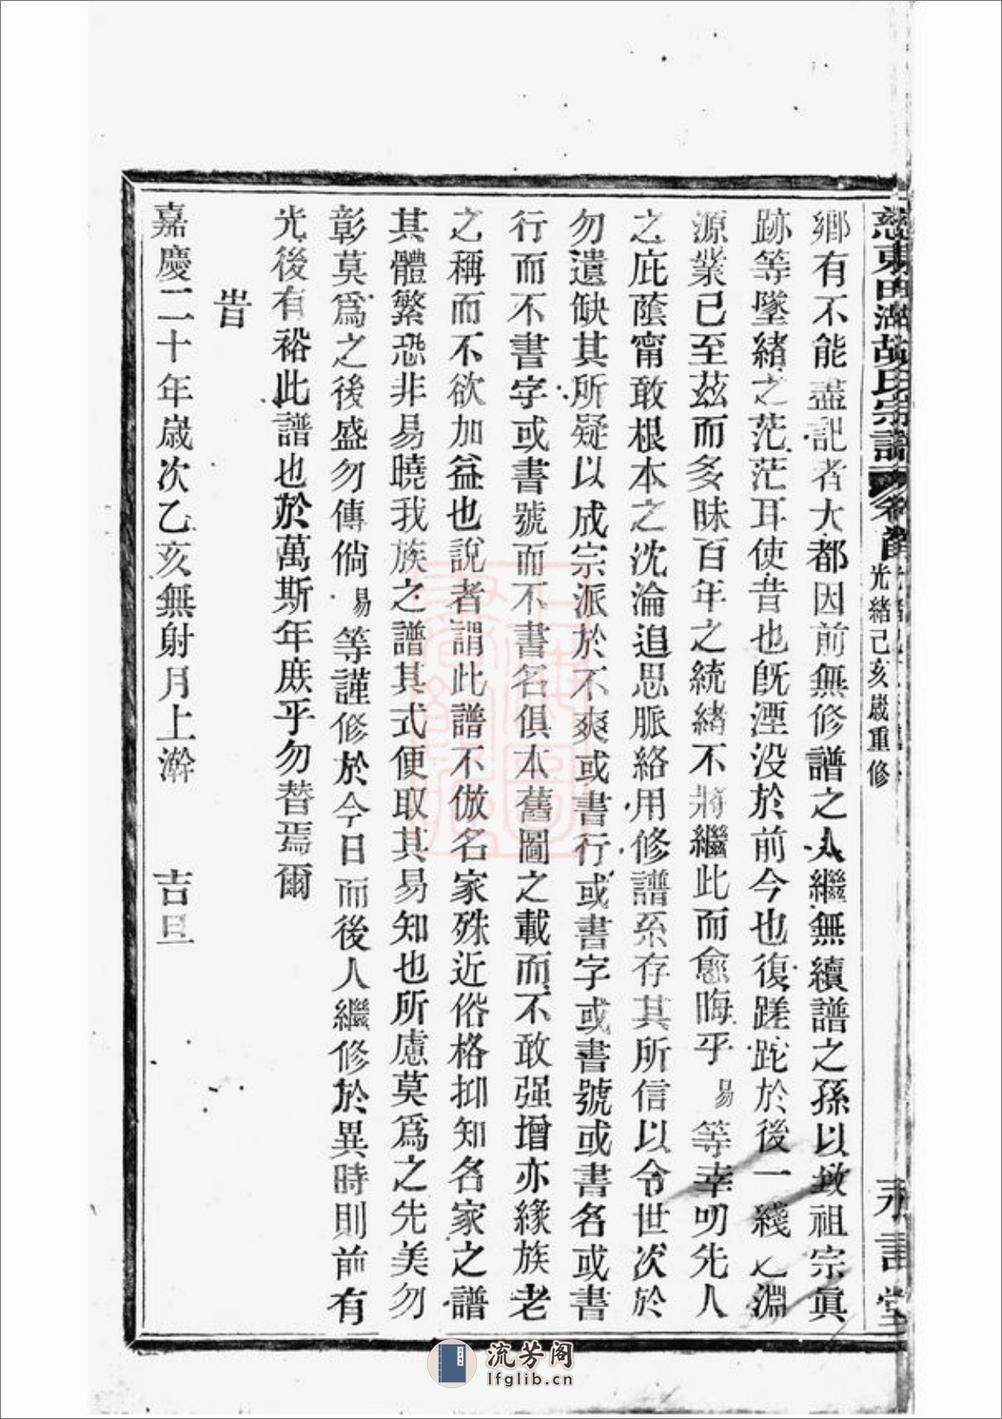 慈東田湖胡氏宗譜 卷首 光緒己亥歲重修 永言堂
鄉有不能盡記者大都因前無修譜之人繼無續譜之孫以致祖宗眞
跡等墜緒之茫茫耳使昔也既湮没於前今也復蹉跎於後一綫之淵
源業已至茲而多昧百年之統緒不將繼此而愈晦乎 易 等幸叨先人
之庇蔭甯敢根本之沈淪追思脈絡用修譜系存其所信以令世次於
勿遺缺其所疑以成宗派於不爽或書行或書字或書號或書名或書
行而不書字或書號而不書名俱本舊圖之載而不敢强增亦緣族老
之稱而不欲加益也說者謂此譜不倣名家殊近俗格抑知名家之譜
其體繁恐非易曉我族之譜其式便取其易知也所慮莫爲之先美勿
彰莫爲之後盛勿傳倘 易 等謹修於今日而後人繼修於異時則前有
光後有裕此譜也於萬斯年庶乎勿替焉爾
旹
嘉慶二十年歲次乙亥無射月上澣 吉旦
流芳阁
lfglib.cn